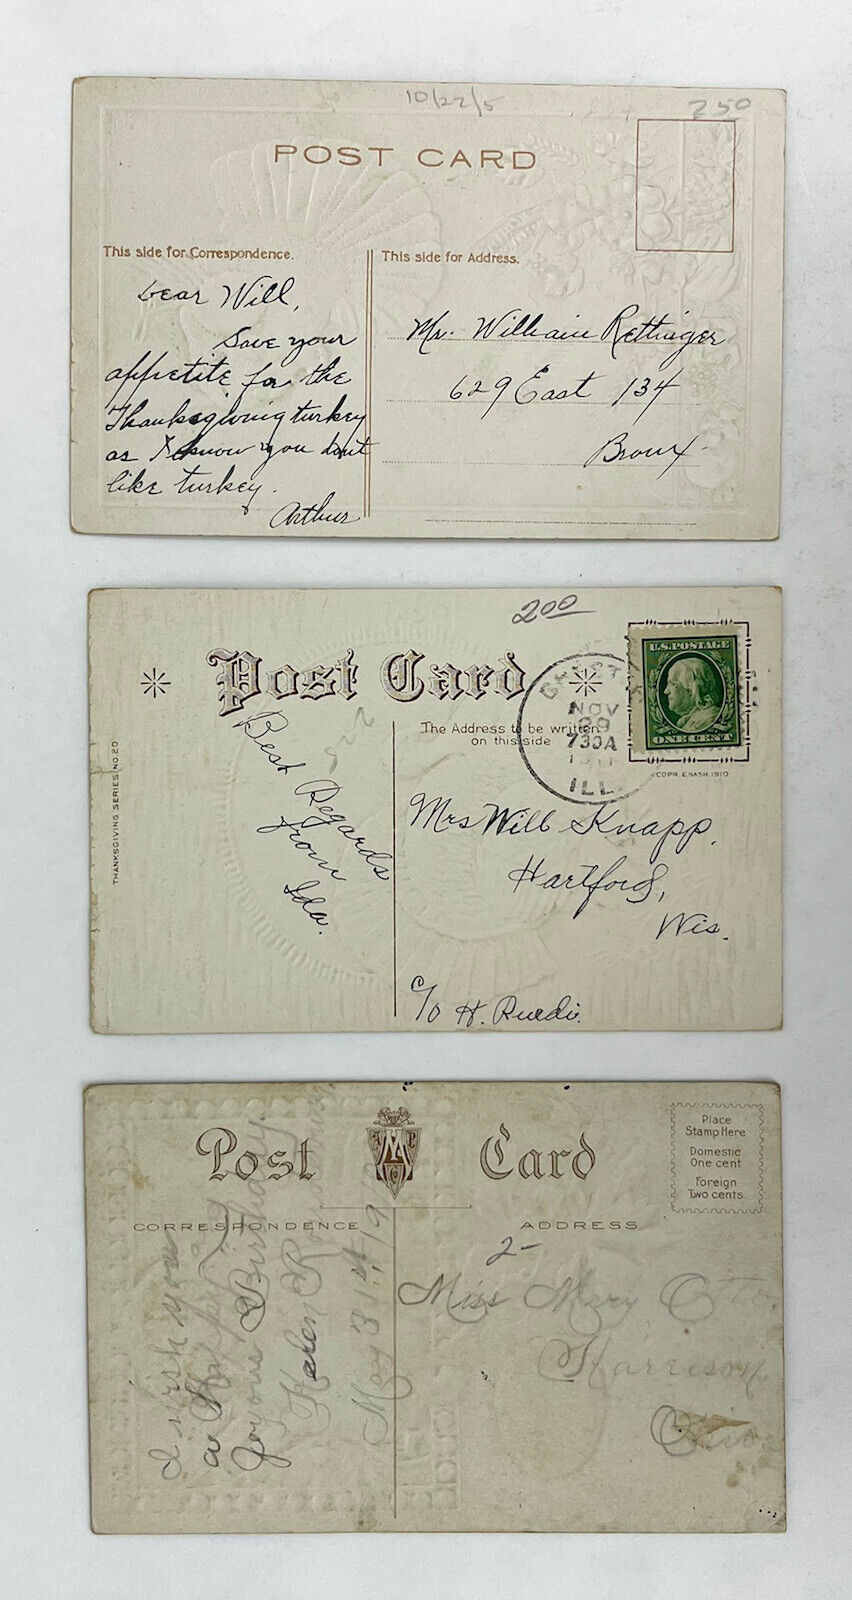 10/22/5
250
POST CARD
This side for Correspondence.
This side for Address.
Dear Will,
Save your
appetite for the
Thanksgiving turkey
as I know you don't
like turkey.
Arthur
Mr. William Rettinger
629 East 134
Bronx.
200
Post Card
THANKSGIVING SERIES NO. 20
The Address to be written
on this side
NOV
29
730A
ILL.
U.S. POSTAGE
ONE CENT
COPR. E. NASH 1910
Best Regards
from
Ida.
Mrs Will Knapp,
Hartford,
Wis.
c/o H. Ruedi.
Post Card
Place
Stamp Here
Domestic
One cent
Foreign
Two cents.
CORRESPONDENCE
ADDRESS
2-
I wish you
a Happy
Joyous Birthday
Karen
May 31st, 19
Miss Mary Otto
Harrison,